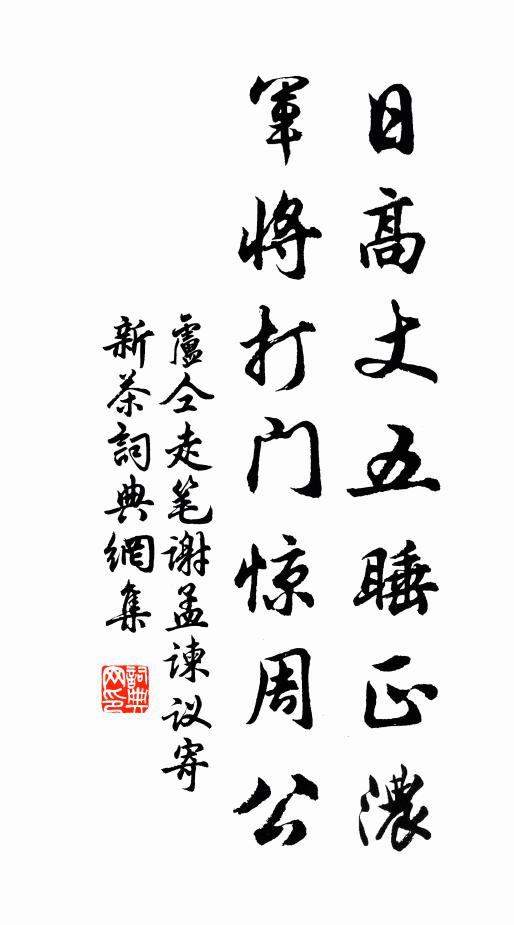 日高丈五睡正濃
軍將打门惊周公
盧仝走笔謝孟諫议寄
新茶詞典網集
詞典网印